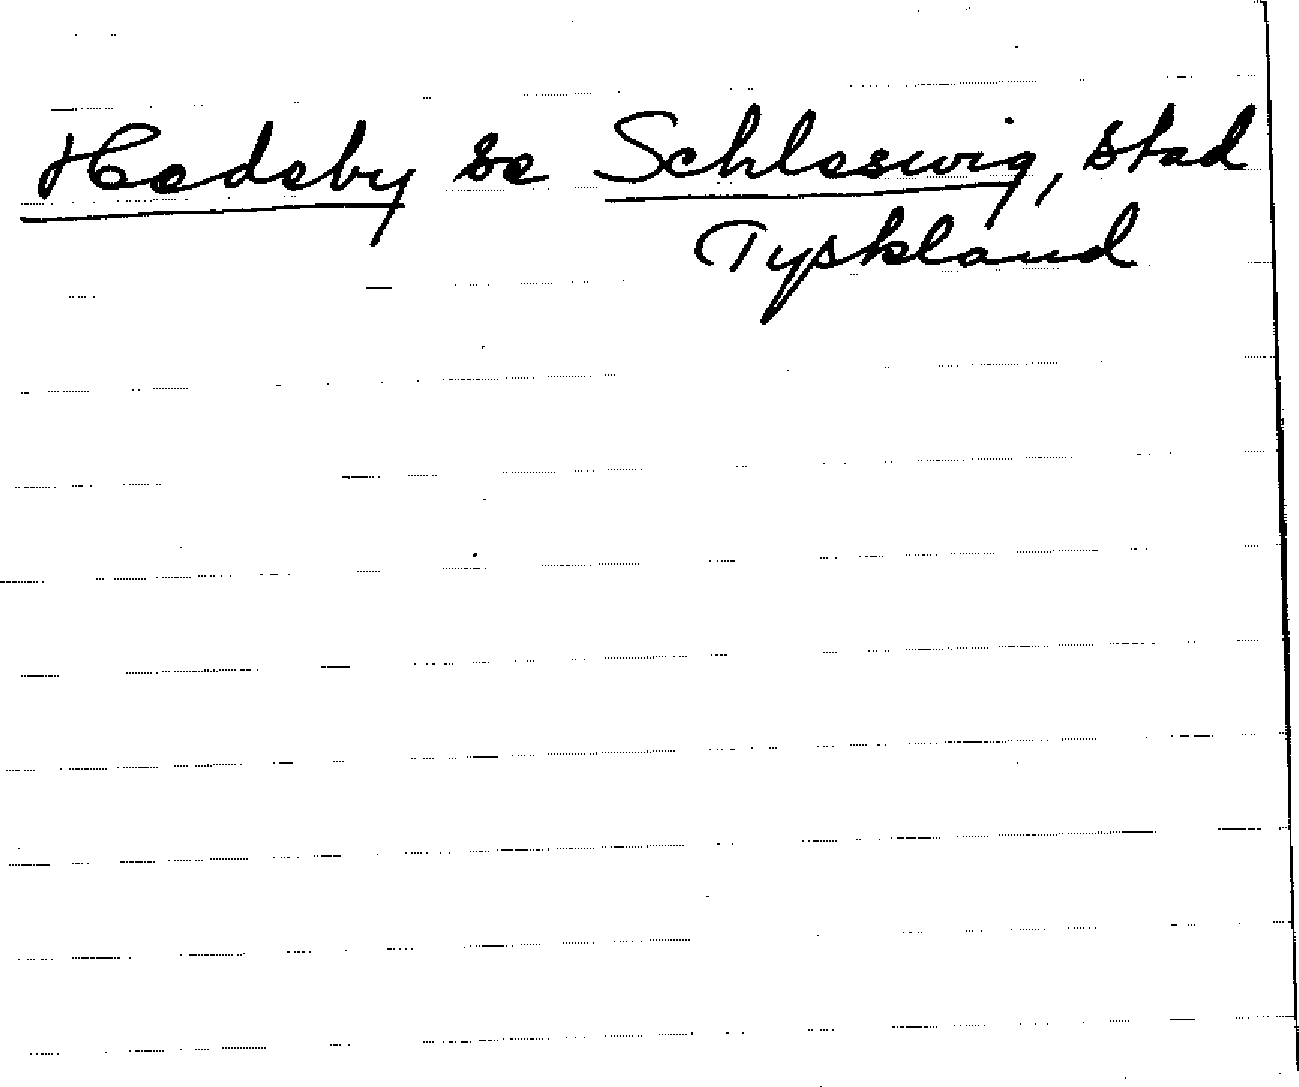 Hedeby se Schleswig, stad
Tyskland